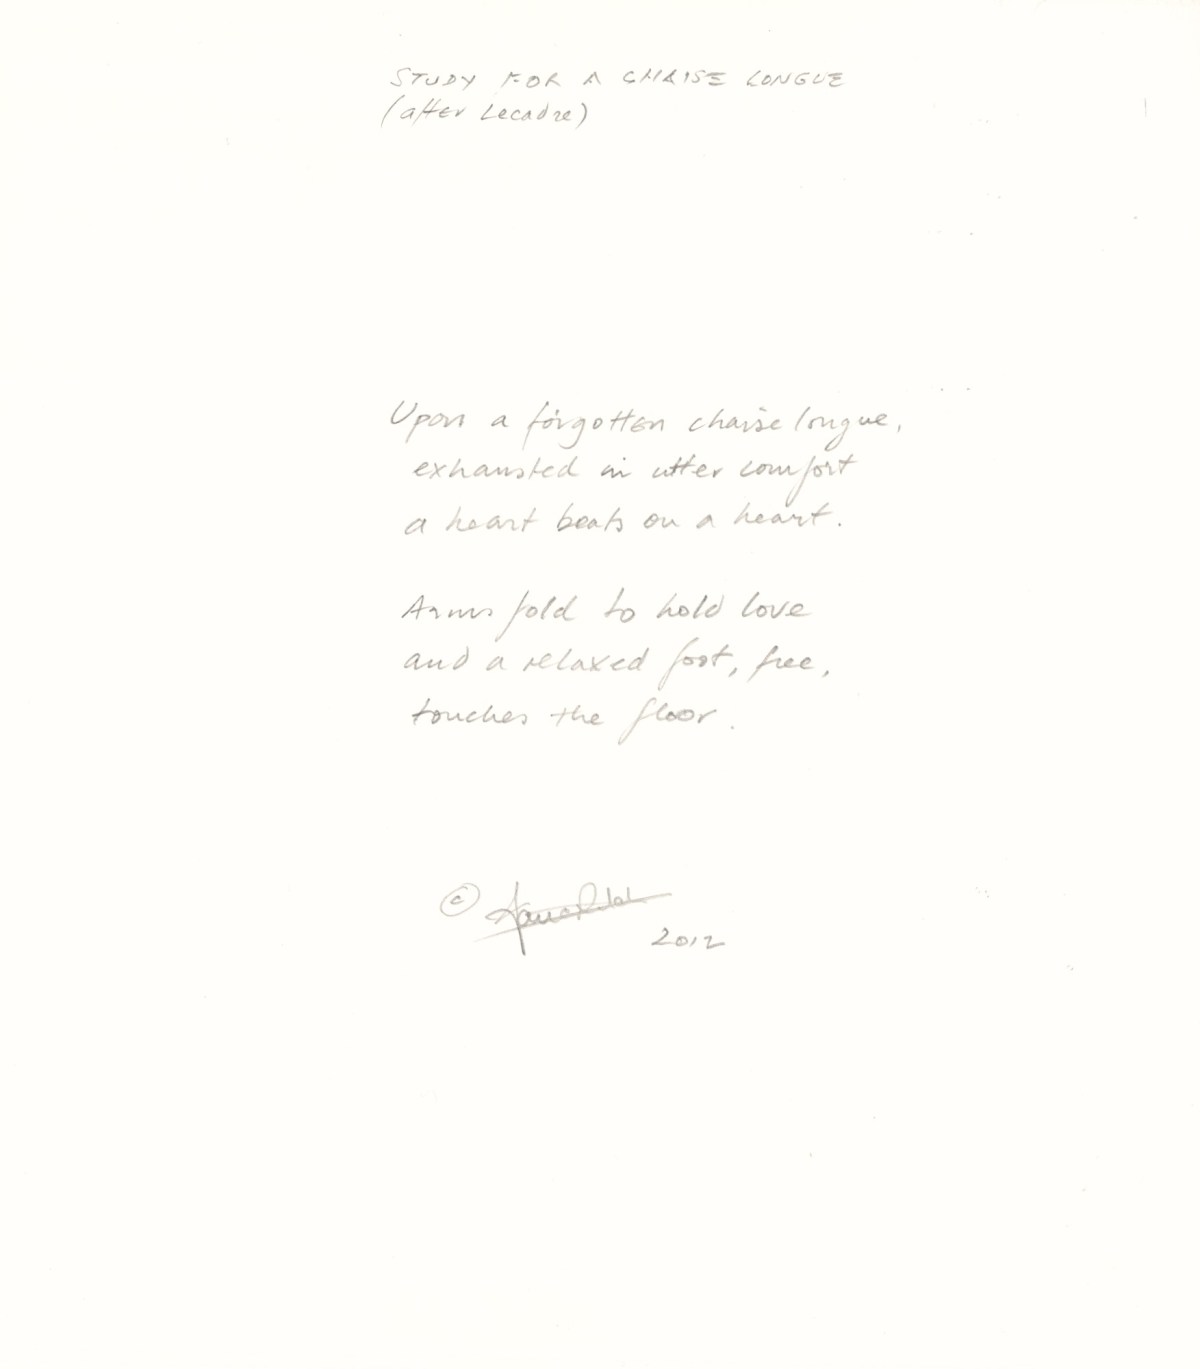 STUDY FOR A CHAISE LONGUE
(after Lecadre)
Upon a forgotten chaise longue,
exhausted in utter comfort
a heart beats on a heart.
Arms fold to hold love
and a relaxed foot, free,
touches the floor.
©
2012